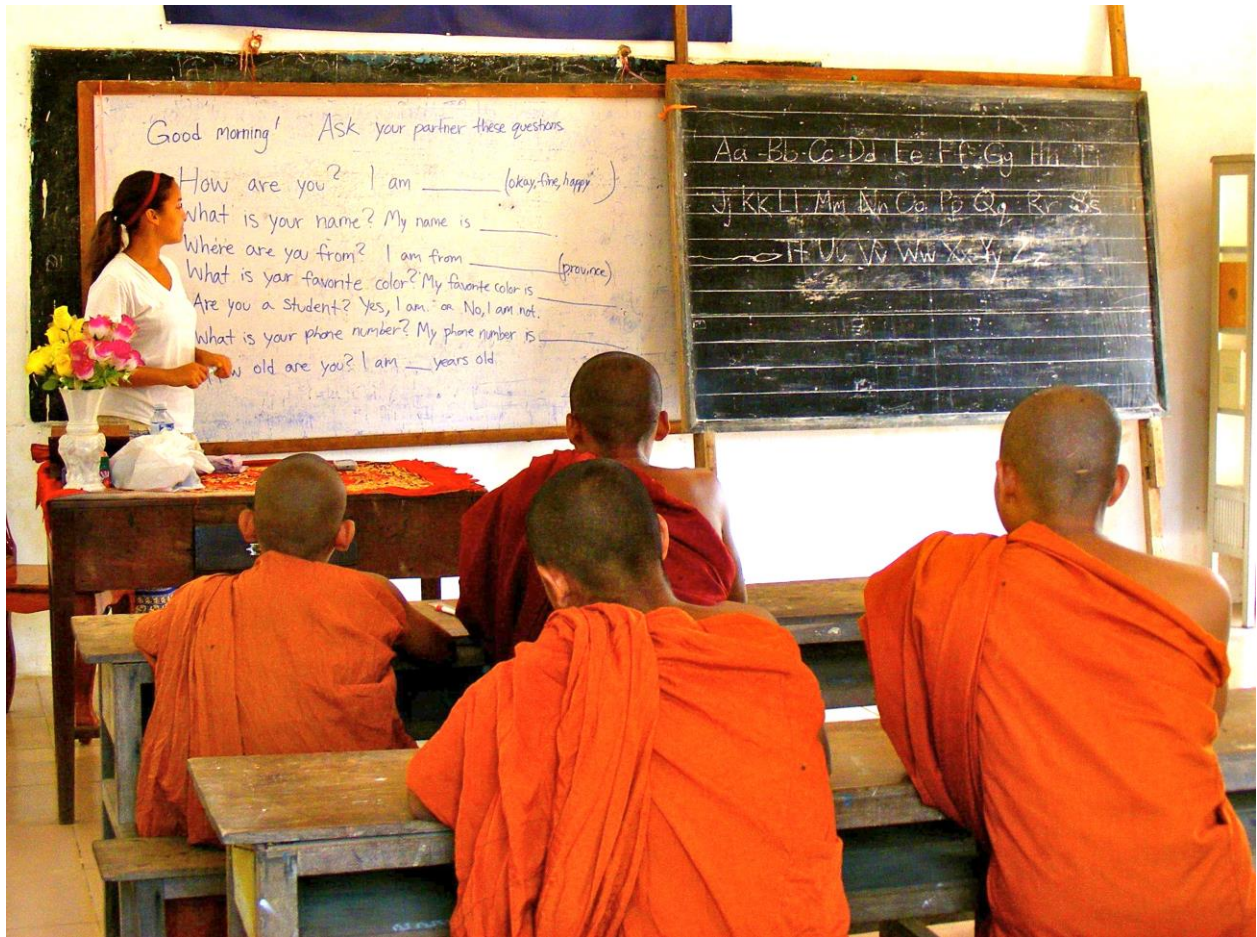 Good morning! Ask your partner these questions
How are you? I am ______ (okay, fine, happy )
What is your name? My name is ______.
Where are you from? I am from ______ (province)
What is your favorite color? My favorite color is ______
Are you a student? Yes, I am. or No, I am not.
What is your phone number? My phone number is ______
How old are you? I am ___ years old.
Aa Bb Cc Dd Ee Ff Gg Hh Ii
Jj Kk Ll Mm Nn Oo Pp Qq Rr Ss
Tt Uu Vv Ww Xx Yy Zz